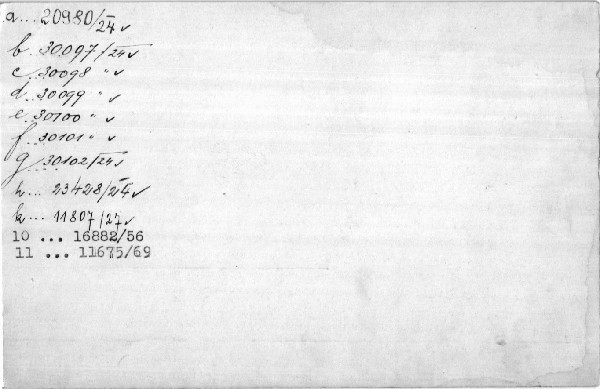 a... 20980/24 ✓
b. 30097/24 ✓
c... 30098 " ✓
d... 30099 " ✓
e... 30100 " ✓
f... 30101 " ✓
g... 30102/24 ✓
h... 23428/24 ✓
k... 11807/27 ✓
10 ... 16882/56
11 ... 11675/69